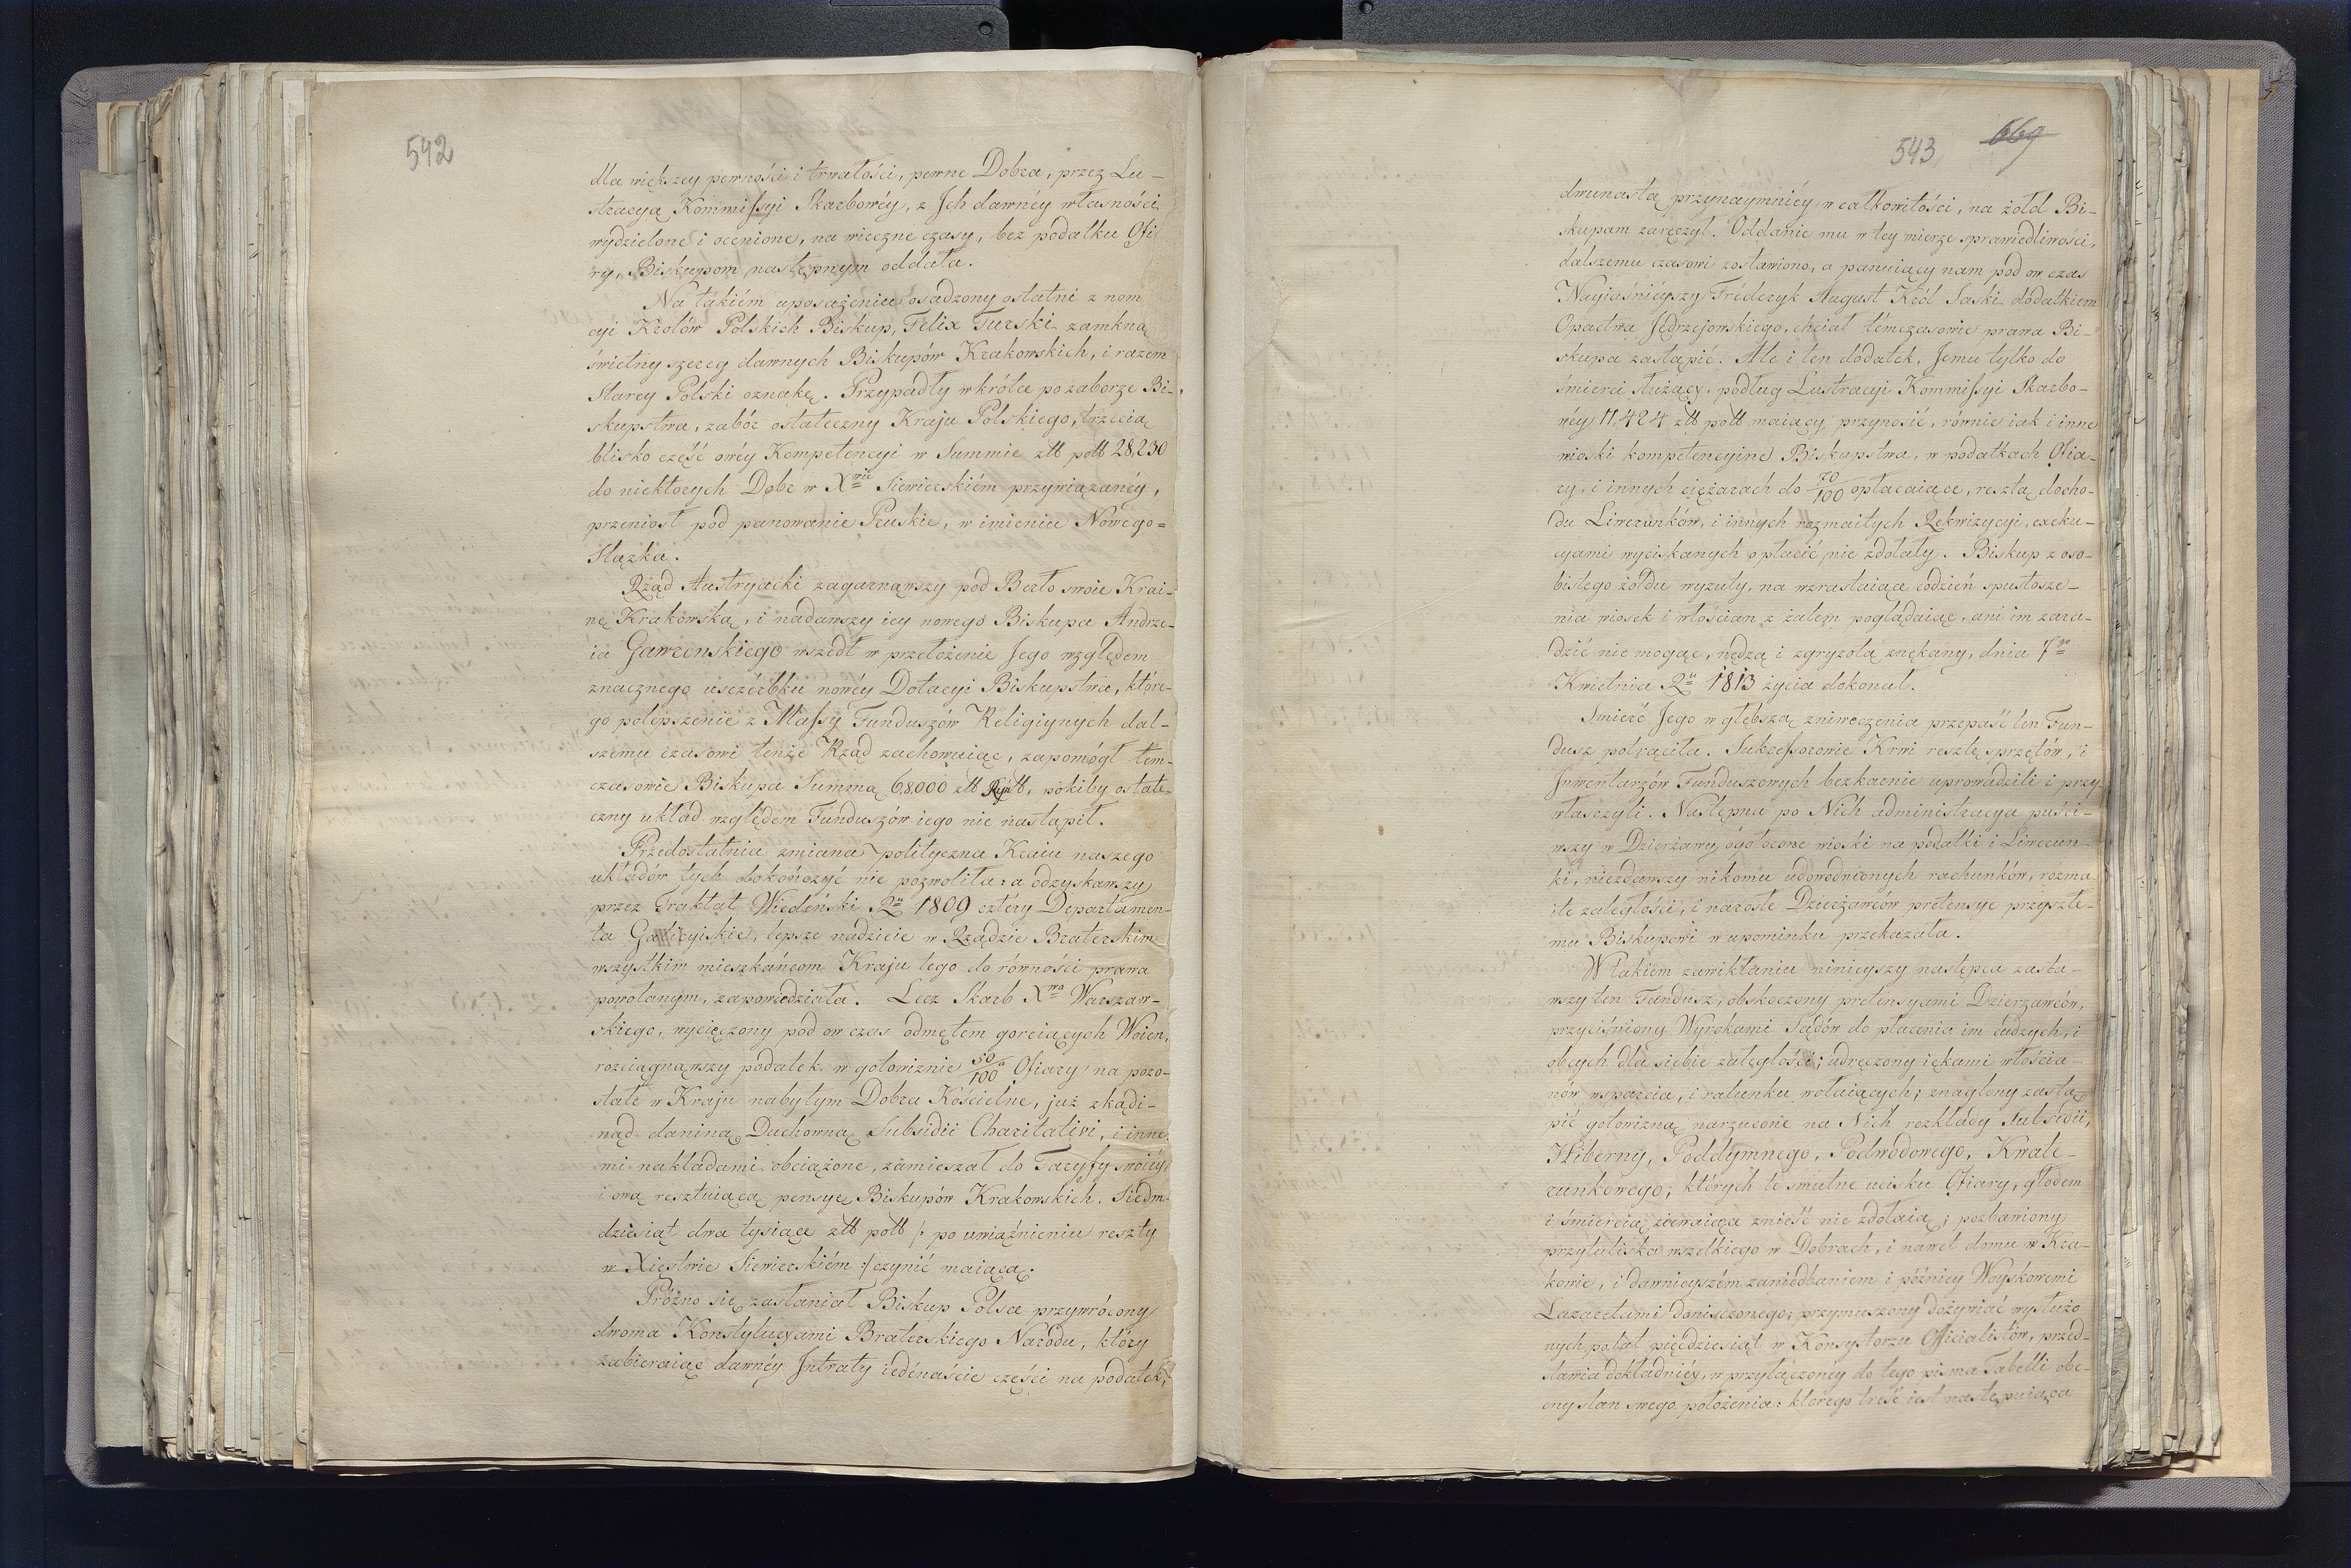 542
dla większey pewności i trwałości, pewne Dobra, przez Lu-
stracyą Kommissyi Skarbowéy, z Jch dawnéy własności
wydzielone i ocenione, na wieczne czasy, bez podatku Ofi
ry, Biskupom następnym oddała.
Na takiém uposażeniu osadzony ostatni z nom
cyi Królów Polskich Biskup, Felix Turski zamkną
świetny szereg dawnych Biskupów Krakowskich, i razem
Starey Polski oznakę. Przypadły wkrótce po zaborze Bi-
skupstwa, zabór ostateczny Kraju Polskiego, trzecią
blisko część owéy Kompetencyi w Summie złł polł 28,230
do niektorych Dobr w Xwie Siewierskiém przywiązanéy,
przeniosł pod panowanie Pruskie, w imieniu Nowego=
Slązka.
Rząd Austryacki zagarnąwszy pod Berło swoie Krai-
nę Krakowską, i nadawszy iey nowego Biskupa Andrze-
ia Gawrońskiego wszedł w przełożenie Jego względem
znacznego uszczérbku nowéy Dotacyi Biskupstwa, które-
go polepszenie z Massy Funduszów Religiynych dal-
szemu czasowi tenże Rząd zachowuiąc, zapomógł tem-
czasowie Biskupa Summą 68,000 złł, pókiby ostate-
czny układ względem Funduszów iego nie nastąpił.
Przedostatnia zmiana polityczna Kraiu naszego
układów tych dokończyć nie pozwoliła: a odzyskawszy
przez Traktat Wiedeński Ru 1809 cztéry Departamen-
ta Gallicyiskie, lepsze nadzieie w Rządzie Braterskim
wszystkim mieszkańcom Kraju tego do równości prawa
powołanym, zapowiedziała. Lecz Skarb Xwa Warszaw-
skiego, wycięczony pod ow czas odmętem goreiących Woien,
rozciągnąwszy podatek w gotowiznie 50/100 Ofiary na pozo-
stałe w Kraju nabytym Dobra Kościelne, już zkądi-
nąd daniną Duchowną Subsidii Charitativi, i inne
mi nakładami obciążone, zamieszał do Taryfy swoiéy
i ową resztuiącą pensyę Biskupów Krakowskich, Siedm-
dziesiąt dwa tysiące złł polł /: po uwiąźnieniu reszty
w Xięstwie Siewierskiém :/ czynić maiącą.
Prózno się zasłaniał Biskup Polsce przywrócony
dwoma Konstytucyami Braterskiego Narodu, który
zabieraiąc dawnéy Jntraty iedénaście części na podatek,
543 669
dwunastą przynaymniéy w całkowitości, na żołd Bi-
skupom zaręczył. Oddanie mu w tey mierze sprawiedliwości,
dalszemu czasowi zostawiono, a panuiący nam pod ow czas
Nayiaśniéyszy Fréderyk August Król Saski dodatkiem
Opactwa Jędrzejowskiego, chciał témczasowie prawa Bi-
skupa zastąpić. Ale i ten dodatek, Jemu tylko do
śmierci służący, podług Lustracyi Kommissyi Skarbo-
wéy 11,424 złł polł maiący przynosić, równie iak i inne
wioski kompetencyine Biskupstwa, w podatkach Ofia-
ry, i innych ciężarach do 70/100 opłacaiące, resztą docho-
du Liwerunków, i innych rozmaitych Rekwizycyi, exeku-
cyami wyciskanych opłacić nie zdołały. Biskup z oso-
bistego żołdu wyzuty, na wzrastaiące codzień spustosze-
nia wiosek i włościan z żalem poglądaiąc, ani im zara-
dzić nie mogąc, nędzą i zgryzotą znękany, dnia 7go
Kwietnia Ru 1813 życia dokonał.
Smierć Jego w głębszą zniweczenia przepaść ten Fun-
dusz potrąciła. Sukcessorowie Krwi resztę sprzętów, i
Jnwentarzów Funduszowych bezkarnie uprowadzili i przy-
właszczyli. Następna po Nich administracya puści-
wszy w Dzierżawy ogołocone wioski na podatki i Liwerun-
ki, niezdawszy nikomu udowodnionych rachunków, rozma
ite zaległości, i narosłe Dzierżawców pretensye przyszłe-
mu Biskupowi w upominku przekazała.
W takiém zawikłaniu ninieyszy następca zasta-
wszy ten Fundusz, obskoczony pretensyami Dzierżawców,
przyciśniony Wyrokami Sądów do płacenia im cudzych, i
obcych dla siebie zaległości; udręczony iękami włościa-
nów wsparcia, i ratunku wołaiących; znaglony zastą-
pić gotowizną narzucone na Nich rozkłady Subsidii,
Hiberny, Poddymnego, Podwodowego, Kwate-
runkowego, których te smutne ucisku Ofiary, głodem
i śmiercią ziewaiąca znieść nie zdołaią; pozbawiony
przytuliska wszelkiego w Dobrach, i nawet domu w Kra-
kowie, i dawnieyszém zaniedbaniem i późniey Woyskowemi
Lazaretami doniszczonego; przymuszony dożywiać wysłużo
nych polat pięćdziesiąt w Konsystorzu Officialistów, przed-
stawia dokładniéy, w przyłączoney do tego pisma Tabelli obe-
cny stan swego położenia: ktorego treść iest następuiąca